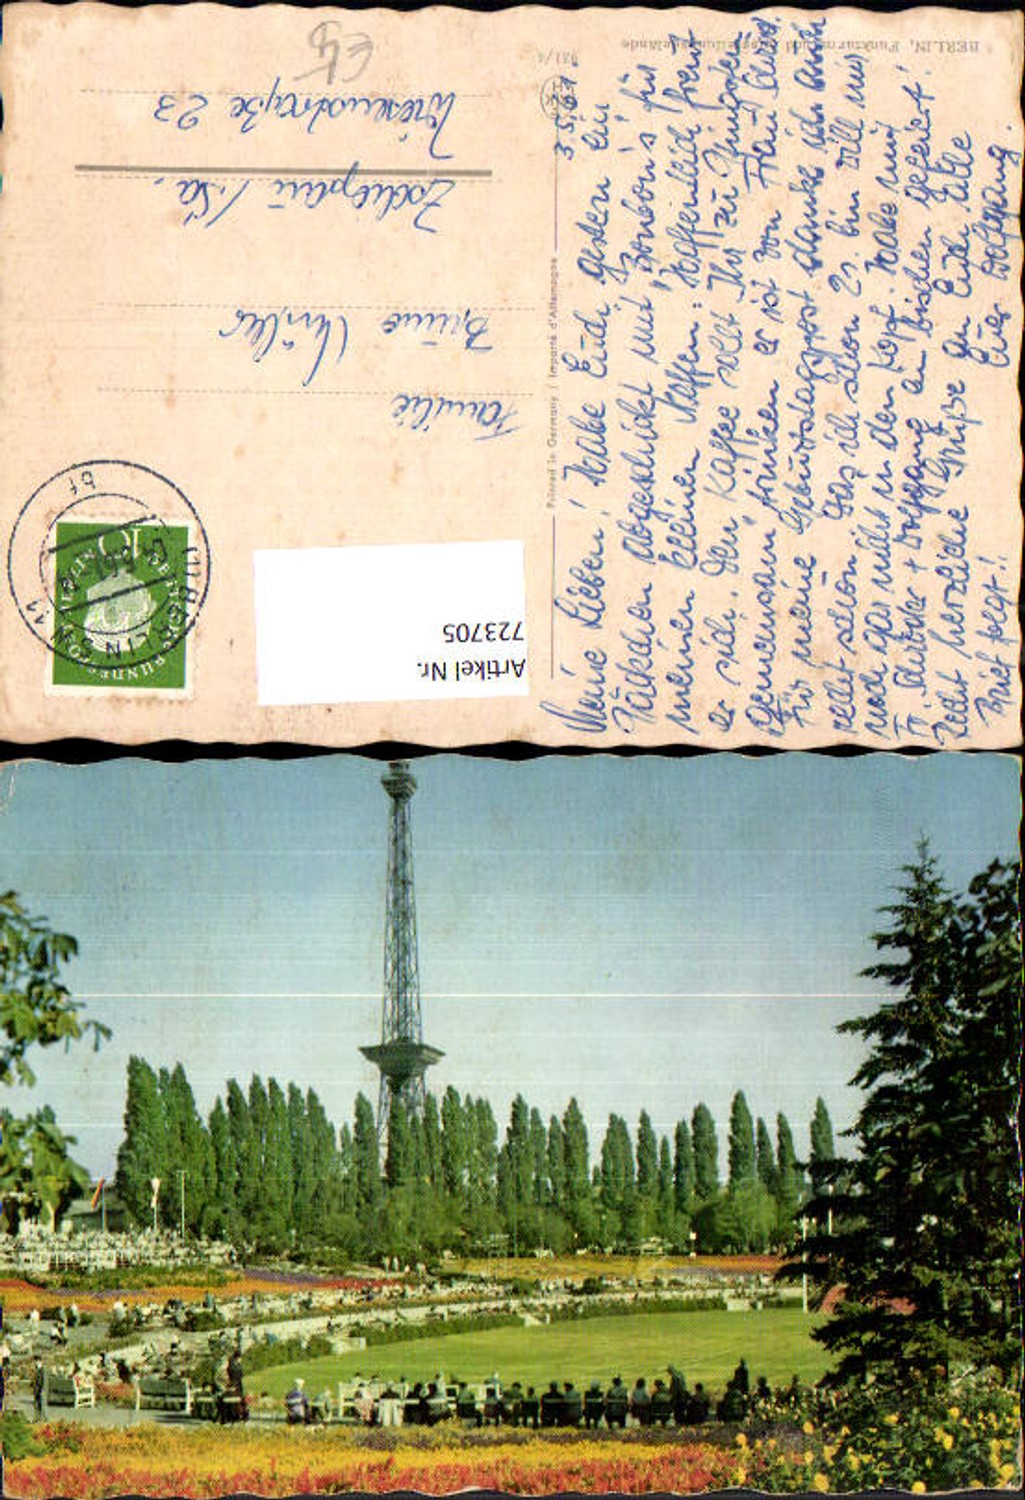 BERLIN, Funkturm und Ausstellungsgelände
931/4
Printed in Germany / Imprimé d'Allemagne
3.5.61
Meine Lieben! Habe Eudi gestern ein
Päckchen abgeschickt mit Bonbon's für
meinen kleinen Steffen: hoffentlich freut
er sich. Den Kaffee sollt Ihr zu Pfingsten
gemeinsam trinken er ist von Frau
Für meine Geburtstagspost danke ich auch
recht schön. Daß ich schon 21. bin will mir
noch gar nicht in den Kopf. Habe mit
+ Wolfgang ein bischen gefeiert!
Recht herzliche Grüße an Eudi Alle
Brief folgt! Euer Wolfgang.
DEUTSCHE BUNDESPOST
BERLIN
10
BERLIN N 11
bf
Familie
Bruno
Zschopau / Sa.
23
Artikel Nr.
723705